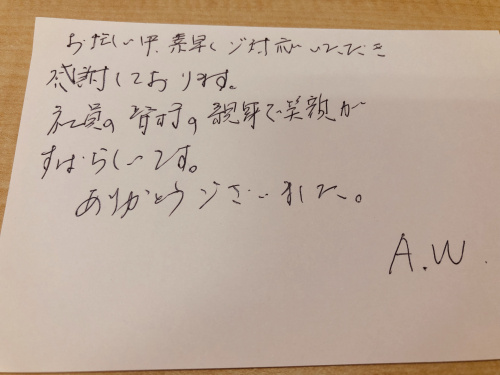 お忙しい中、素早くご対応いただき
感謝しております。
社員の皆様の親身で笑顔が
すばらしいです。
ありがとうございました。
A.W.